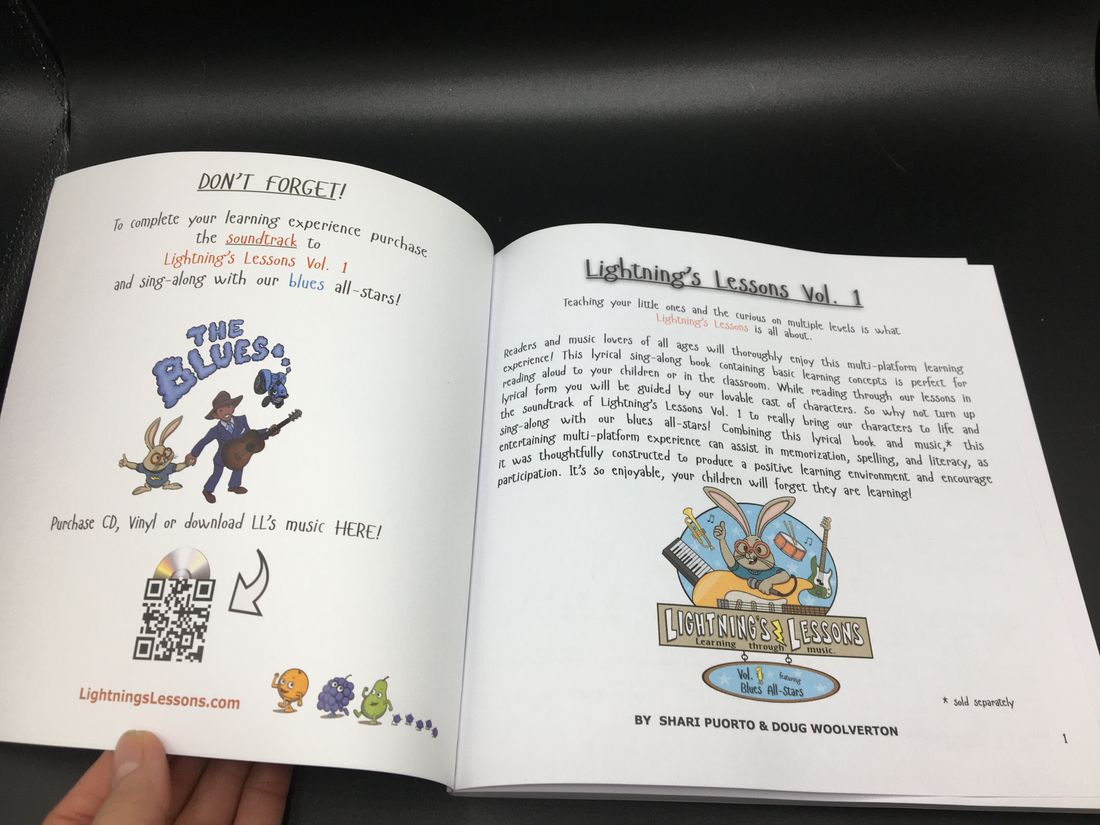 DON'T FORGET!
To complete your learning experience purchase
the soundtrack to
Lightning's Lessons Vol. 1
and sing-along with our blues all-stars!
THE
BLUES
Purchase CD, Vinyl or download LL's music HERE!
LightningsLessons.com
Lightning's Lessons Vol. 1
Teaching your little ones and the curious on multiple levels is what
Lightning's Lessons is all about.
Readers and music lovers of all ages will thoroughly enjoy this multi-platform learning
experience! This lyrical sing-along book containing basic learning concepts is perfect for
reading aloud to your children or in the classroom. While reading through our lessons in
lyrical form you will be guided by our lovable cast of characters. So why not turn up
the soundtrack of Lightning's Lessons Vol. 1 to really bring our characters to life and
sing-along with our blues all-stars! Combining this lyrical book and music,* this
entertaining multi-platform experience can assist in memorization, spelling, and literacy, as
it was thoughtfully constructed to produce a positive learning environment and encourage
participation. It's so enjoyable, your children will forget they are learning!
LIGHTNING'S LESSONS
Learning through music.
Vol. 1 featuring
Blues All-Stars
* sold separately
BY SHARI PUORTO & DOUG WOOLVERTON
1